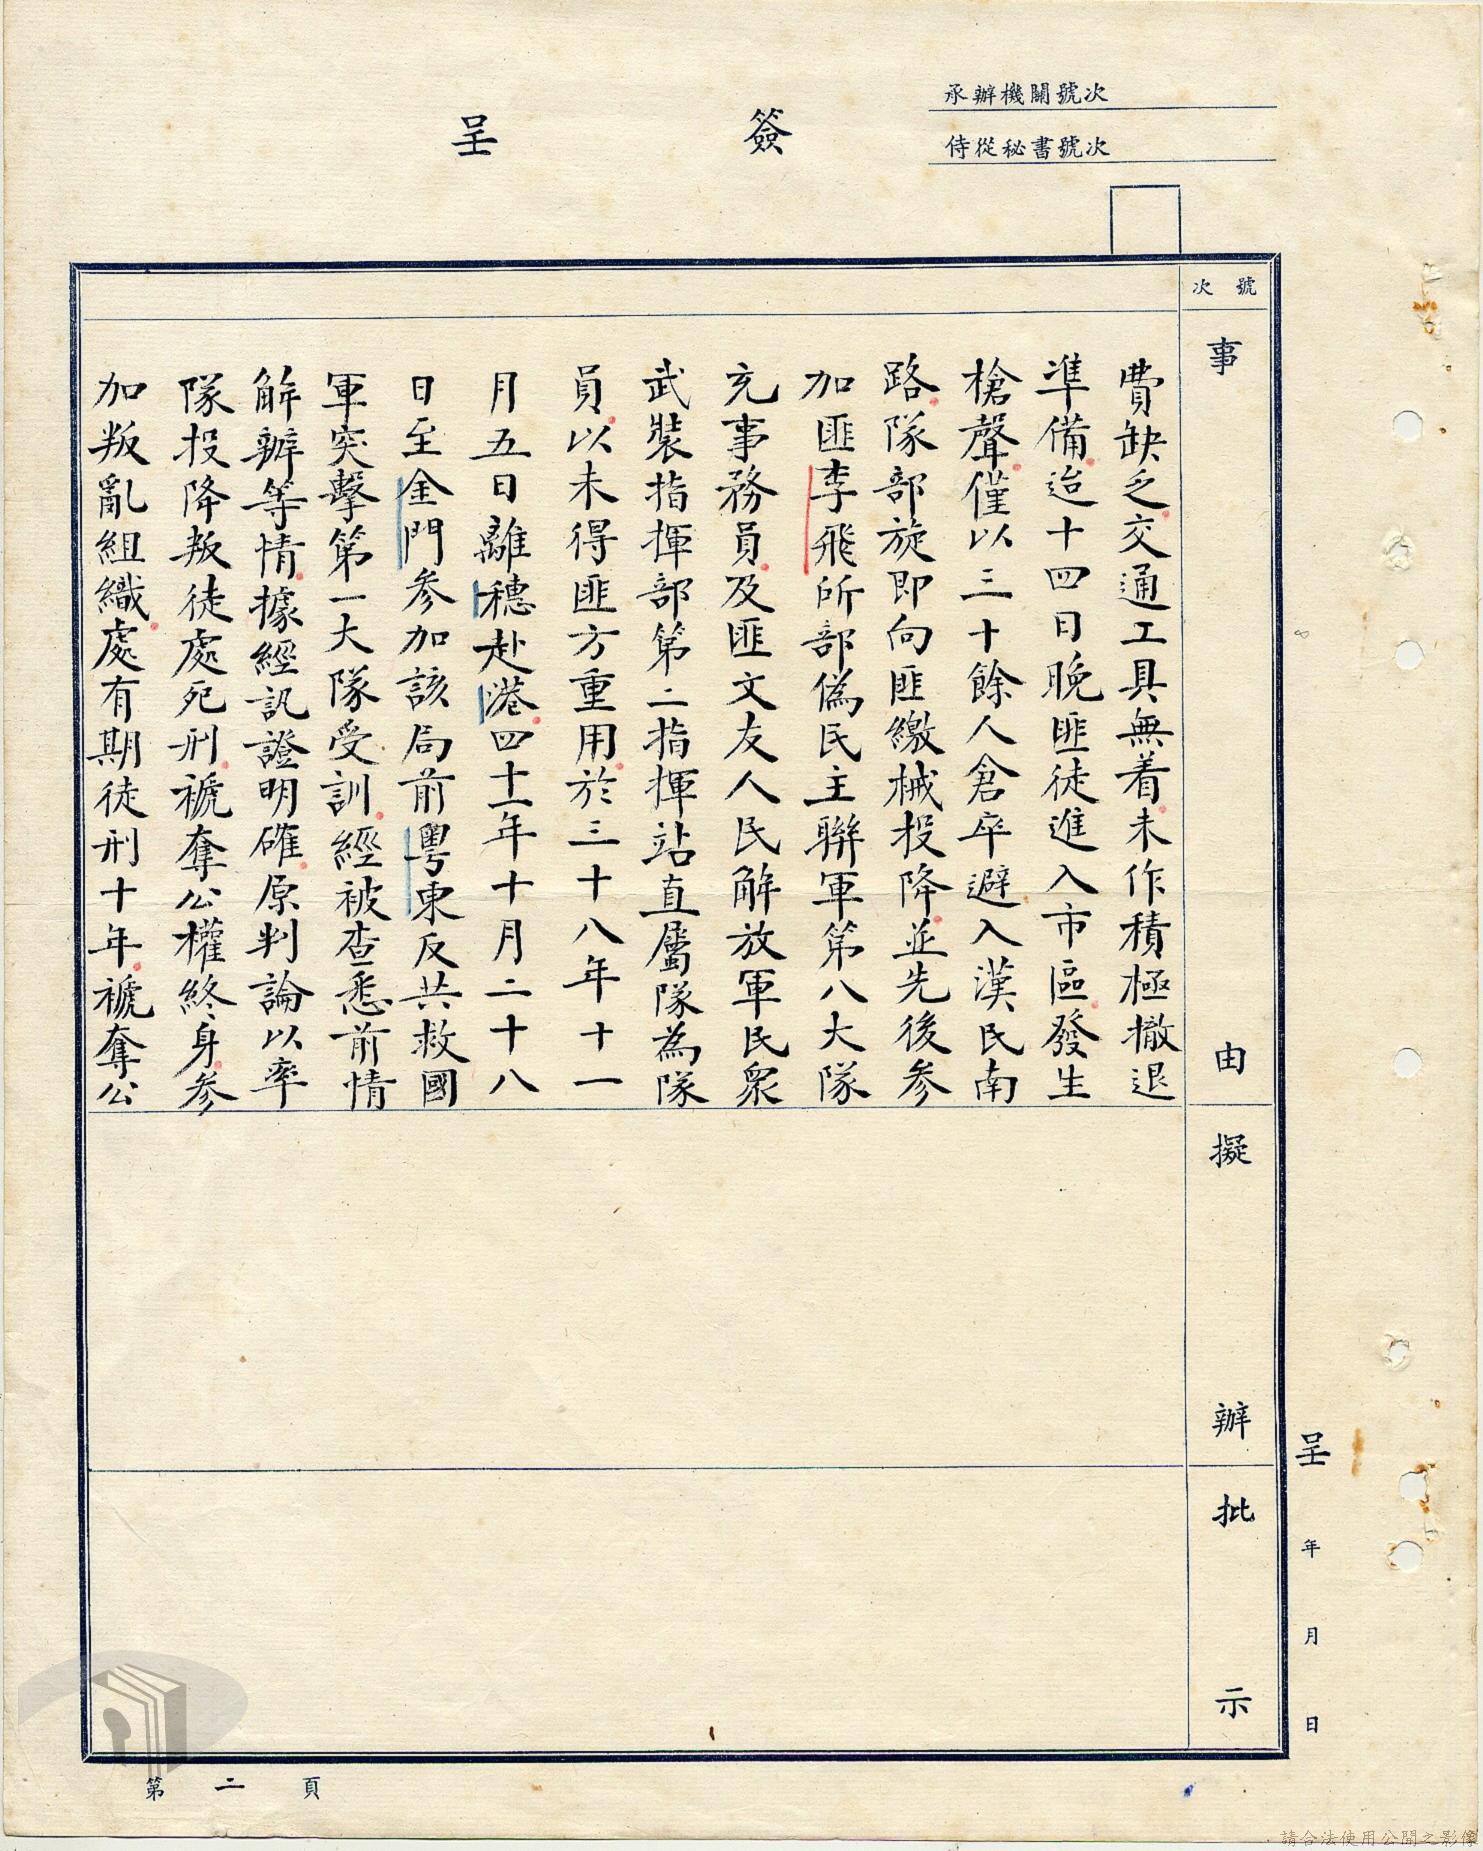 承辦機關號次
侍從秘書號次
簽呈
號次
事由
費缺乏交通工具無着未作積極撤退
準備迨十四日晚匪徒進入市區發生
槍聲僅以三十餘人倉卒避入漢民南
路隊部旋即向匪繳械投降並先後參
加匪李飛所部偽民主聯軍第八大隊
充事務員及匪文友人民解放軍民眾
武裝指揮部第二指揮站直屬隊為隊
員以未得匪方重用於三十八年十一
月五日離穗赴港四十一年十月二十八
日至金門參加該局前粵東反共救國
軍突擊第一大隊受訓經被查悉前情
解辦等情據經訊證明確原判論以率
隊投降叛徒處死刑褫奪公權終身參
加叛亂組織處有期徒刑十年褫奪公
擬辦
批示
呈年月日
第二頁
請合法使用公開之影像